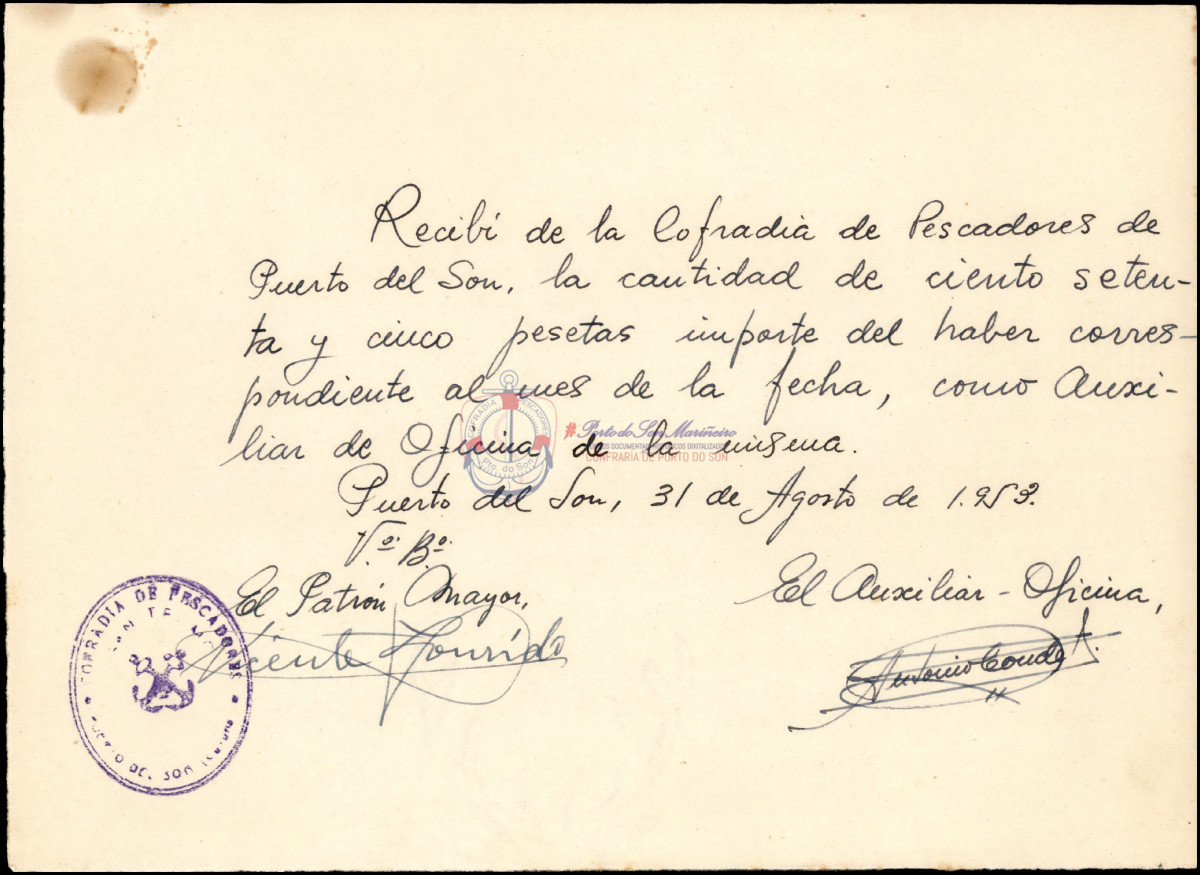 Recibí de la Cofradía de Pescadores de
Puerto del Son, la cantidad de ciento seten-
ta y cinco pesetas importe del haber corres-
pondiente al mes de la fecha, como Auxi-
liar de Oficina de la misma.
COFRADIA PESCADORES
Pto. do Son
#Porto do Son Mariñeiro
DOCUMENTOS DIGITALIZADOS
CONFRARÍA DE PORTO DO SON
Puerto del Son, 31 de Agosto de 1.953.
Vº. Bº.
El Patrón Mayor,
El Auxiliar - Oficina,
Vicente
Antonio Conde A.
COFRADIA DE PESCADORES
PUERTO DEL SON